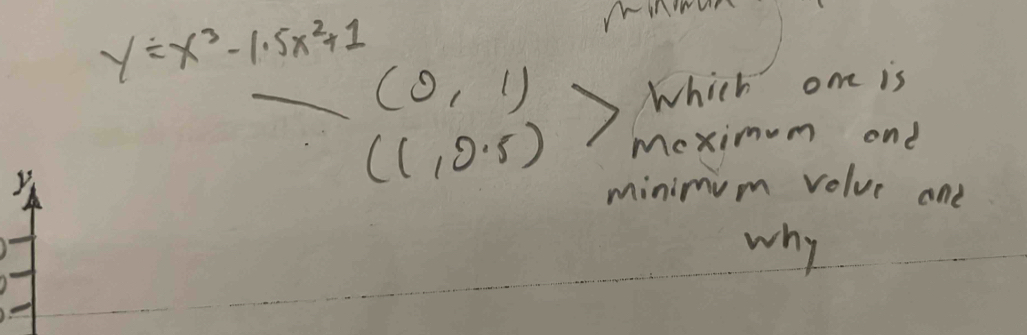 minimum
y = x³ - 1.5x² + 1
(0, 1)
(1, 0.5)
> which one is
maximum and
minimum value and
why
y